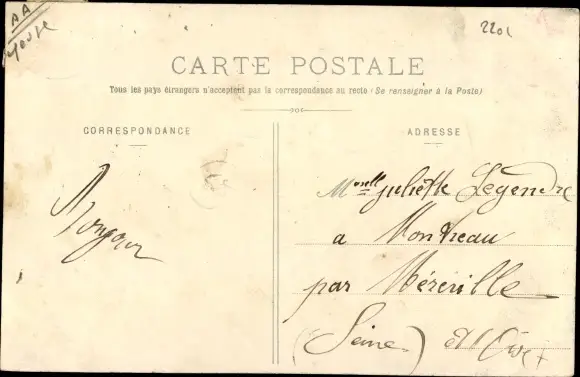 AA
2201
CARTE POSTALE
Tous les pays étrangers n'acceptent pas la correspondance au recto (Se renseigner à la Poste)
CORRESPONDANCE
Bonjour
ADRESSE
Melle Juliette Legendre
a Montreau
par Méréville
(Seine) et Oise